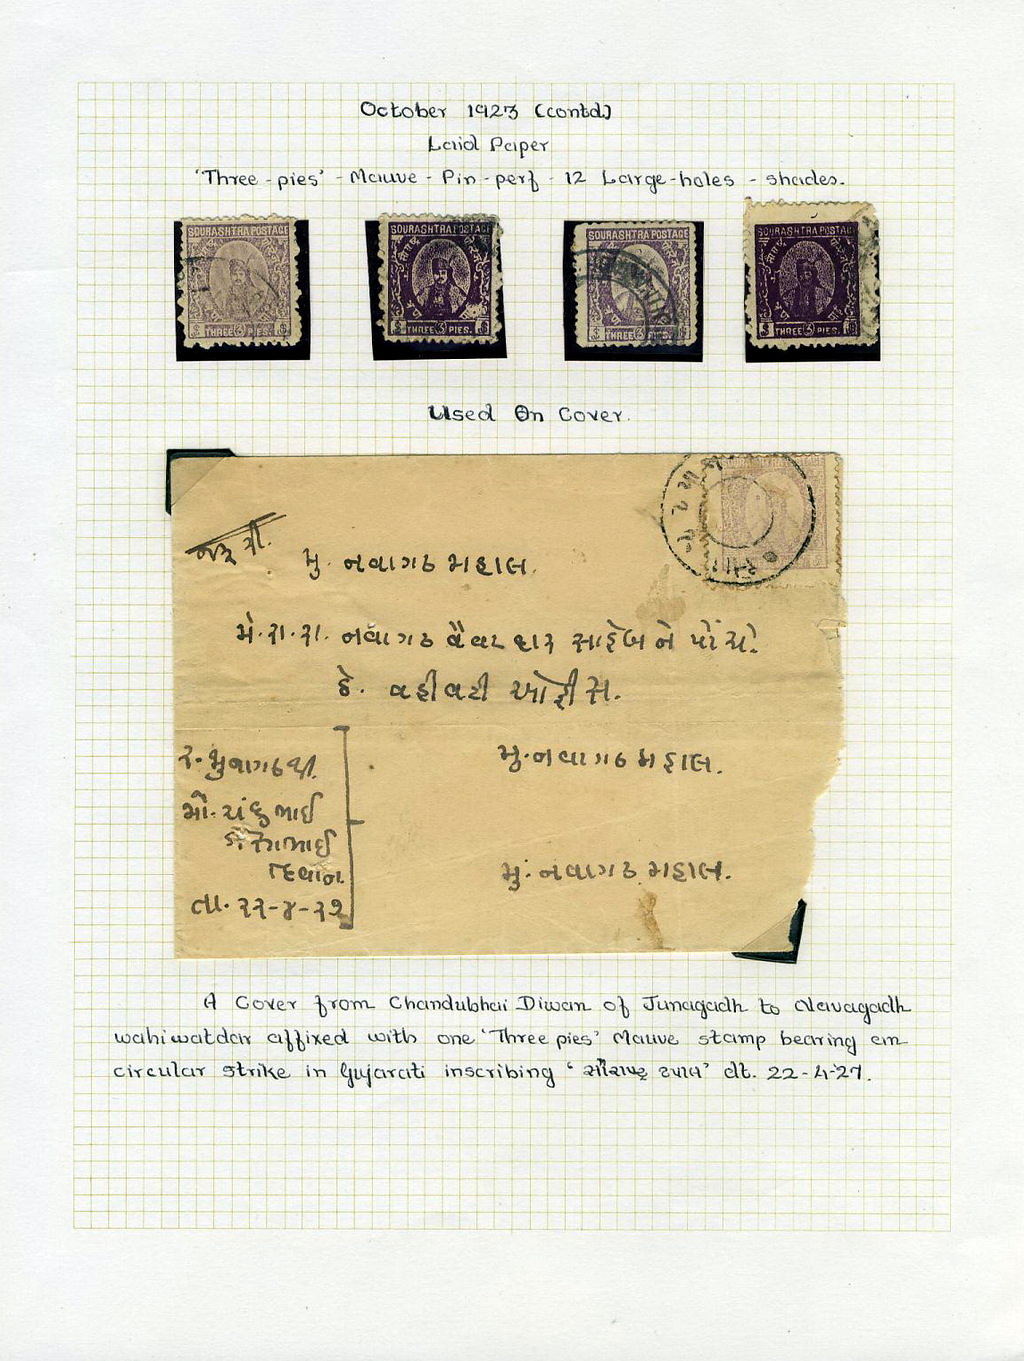 October 1923 (contd)
Laid Paper
'Three-pies' - Mauve - Pin-perf - 12 Large-holes - shades.
SOURASHTRA POSTAGE
THREE 3 PIES.
SOURASHTRA POSTAGE
THREE 3 PIES.
SOURASHTRA POSTAGE
THREE 3 PIES.
SOURASHTRA POSTAGE
THREE 3 PIES.
Used On Cover.
મુ. નવાગઢ મહાલ.
મે. રા. રા. નવાગઢ વૈવટદાર સાહેબ ને પોંચે.
ઠે. વહીવટી ઓફીસ.
મુ. નવાગઢ મહાલ.
મુ. નવાગઢ મહાલ.
ર. જુનાગઢથી
મો. ચંદુભાઈ
દિવાન
તા. ૨૨-૪-૨૭
A Cover from Chandubhai Diwan of Junagadh to Navagadh
wahiwatdar affixed with one 'Three pies' Mauve stamp bearing an
circular strike in Gujarati inscribing 'સૌરાષ્ટ્ર ટપાલ' dt. 22-4-27.